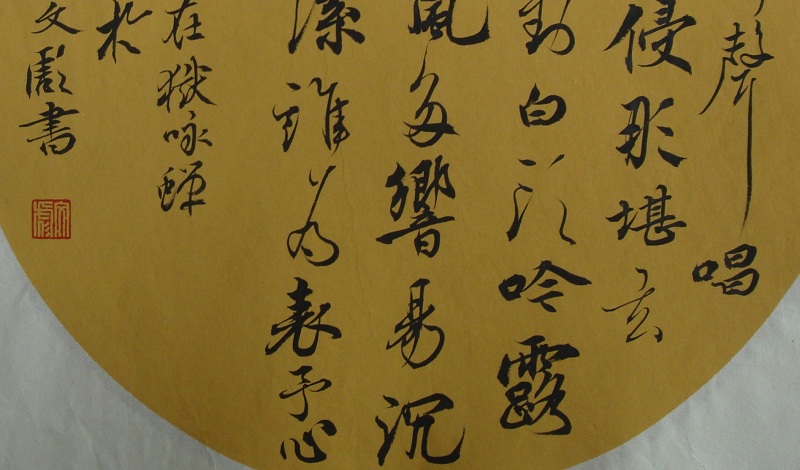 聲唱
侵那堪玄
對白頭吟露
風多響易沉
潔誰為表予心
在獄咏蟬
於
文書